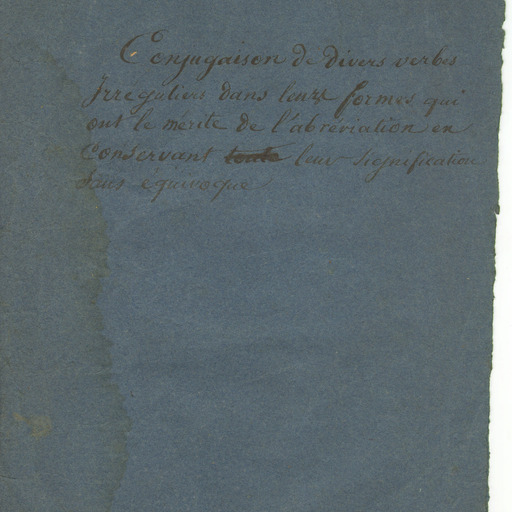 Conjugaison de divers verbes
Irreguliers dans leurs formes qui
ont le mérite de l'abréviation en
Conservant toute leur signification
Sans équivoque